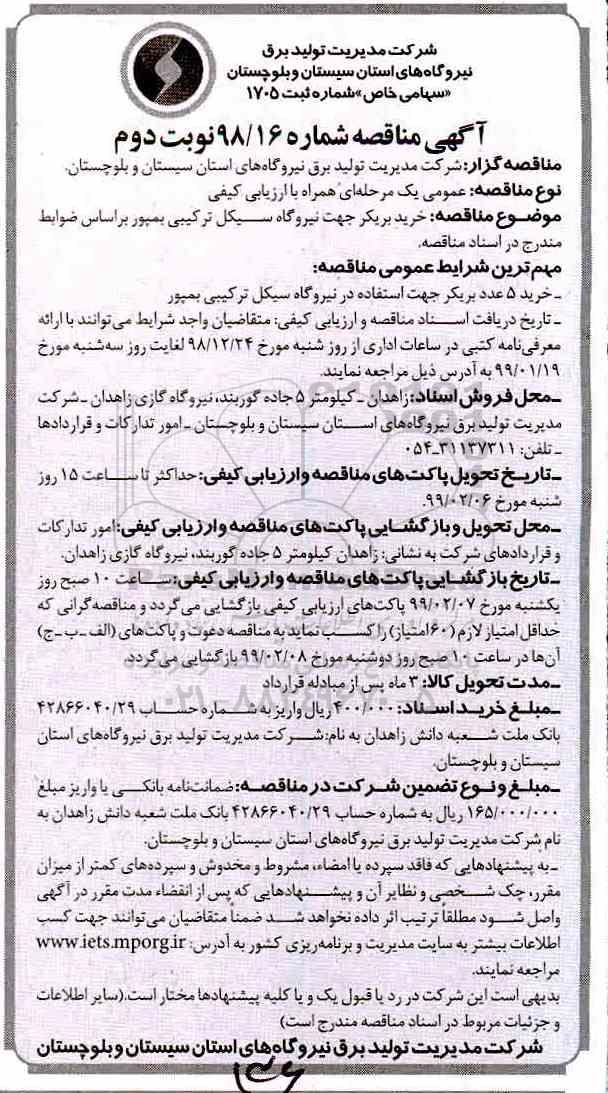 شرکت مدیریت تولید برق
نیروگاه‌های استان سیستان و بلوچستان
«سهامی خاص» شماره ثبت ۱۷۰۵
آگهی مناقصه شماره ۹۸/۱۶ نوبت دوم
مناقصه گزار: شرکت مدیریت تولید برق نیروگاه‌های استان سیستان و بلوچستان.
نوع مناقصه: عمومی یک مرحله‌ای همراه با ارزیابی کیفی
موضوع مناقصه: خرید بریکر جهت نیروگاه سیکل ترکیبی بمپور براساس ضوابط
مندرج در اسناد مناقصه.
مهم‌ترین شرایط عمومی مناقصه:
ـ خرید ۵ عدد بریکر جهت استفاده در نیروگاه سیکل ترکیبی بمپور
ـ تاریخ دریافت اسناد مناقصه و ارزیابی کیفی: متقاضیان واجد شرایط می‌توانند با ارائه
معرفی‌نامه کتبی در ساعات اداری از روز شنبه مورخ ۹۸/۱۲/۲۴ لغایت روز سه‌شنبه مورخ
۹۹/۰۱/۱۹ به آدرس ذیل مراجعه نمایند.
ـ محل فروش اسناد: زاهدان ـ کیلومتر ۵ جاده گوربند، نیروگاه گازی زاهدان ـ شرکت
مدیریت تولید برق نیروگاه‌های استان سیستان و بلوچستان ـ امور تدارکات و قراردادها
ـ تلفن: ۳۱۱۳۷۳۱۱ـ۰۵۴
ـ تاریخ تحویل پاکت‌های مناقصه و ارزیابی کیفی: حداکثر تا ساعت ۱۵ روز
شنبه مورخ ۹۹/۰۲/۰۶.
ـ محل تحویل و بازگشایی پاکت‌های مناقصه و ارزیابی کیفی: امور تدارکات
و قراردادهای شرکت به نشانی: زاهدان کیلومتر ۵ جاده گوربند، نیروگاه گازی زاهدان.
ـ تاریخ بازگشایی پاکت‌های مناقصه و ارزیابی کیفی: ساعت ۱۰ صبح روز
یکشنبه مورخ ۹۹/۰۲/۰۷ پاکت‌های ارزیابی کیفی بازگشایی می‌گردد و مناقصه‌گرانی که
حداقل امتیاز لازم (۶۰ امتیاز) را کسب نماید به مناقصه دعوت و پاکت‌های (الف ـ ب ـ ج)
آن‌ها در ساعت ۱۰ صبح روز دوشنبه مورخ ۹۹/۰۲/۰۸ بازگشایی می‌گردد.
ـ مدت تحویل کالا: ۳ ماه پس از مبادله قرارداد
ـ مبلغ خرید اسناد: ۴۰۰/۰۰۰ ریال واریز به شماره حساب ۴۲۸۶۶۰۴۰/۲۹
بانک ملت شعبه دانش زاهدان به نام: شرکت مدیریت تولید برق نیروگاه‌های استان
سیستان و بلوچستان.
ـ مبلغ و نوع تضمین شرکت در مناقصه: ضمانت‌نامه بانکی یا واریز مبلغ
۱۶۵/۰۰۰/۰۰۰ ریال به شماره حساب ۴۲۸۶۶۰۴۰/۲۹ بانک ملت شعبه دانش زاهدان به
نام شرکت مدیریت تولید برق نیروگاه‌های استان سیستان و بلوچستان.
ـ به پیشنهادهایی که فاقد سپرده یا امضاء، مشروط و مخدوش و سپرده‌های کمتر از میزان
مقرر، چک شخصی و نظایر آن و پیشنهادهایی که پس از انقضاء مدت مقرر در آگهی
واصل شود مطلقاً ترتیب اثر داده نخواهد شد ضمناً متقاضیان می‌توانند جهت کسب
اطلاعات بیشتر به سایت مدیریت و برنامه‌ریزی کشور به آدرس: www.iets.mporg.ir
مراجعه نمایند.
بدیهی است این شرکت در رد یا قبول یک و یا کلیه پیشنهادها مختار است. (سایر اطلاعات
و جزئیات مربوط در اسناد مناقصه مندرج است)
شرکت مدیریت تولید برق نیروگاه‌های استان سیستان و بلوچستان